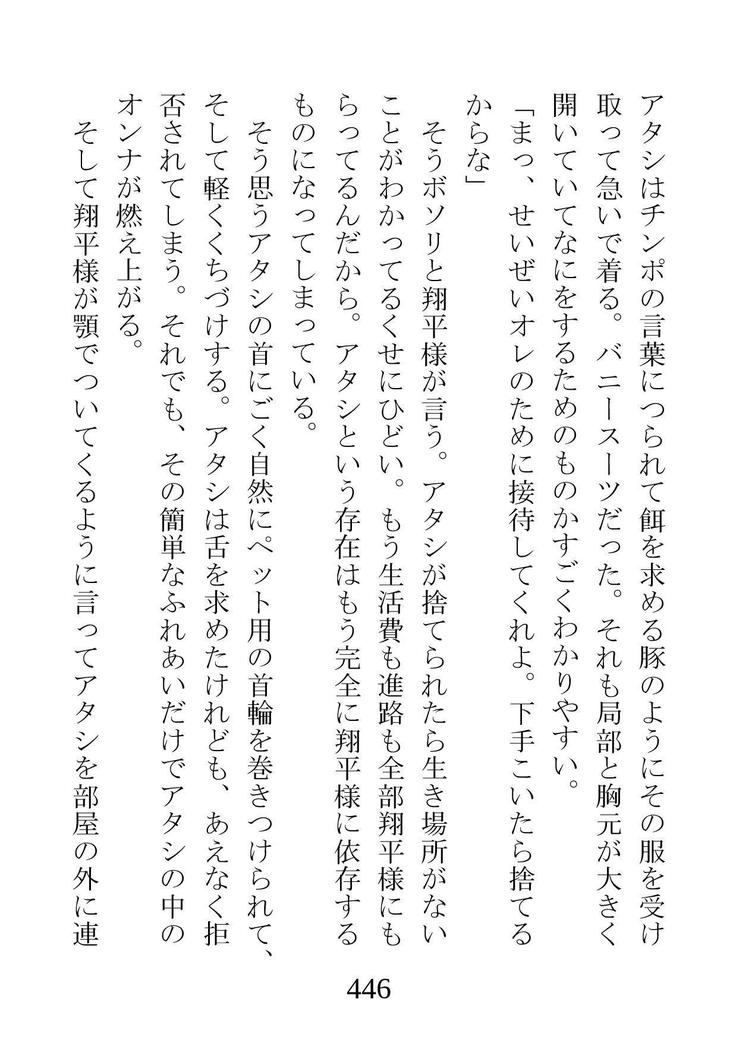 アタシはチンポの言葉につられて餌を求める豚のようにその服を受け
取って急いで着る。バニースーツだった。それも局部と胸元が大きく
開いていてなにをするためのものかすごくわかりやすい。
「まっ、せいぜいオレのために接待してくれよ。下手こいたら捨てる
からな」
そうボソリと翔平様が言う。アタシが捨てられたら生き場所がない
ことがわかってるくせにひどい。もう生活費も進路も全部翔平様にも
らってるんだから。アタシという存在はもう完全に翔平様に依存する
ものになってしまっている。
そう思うアタシの首にごく自然にペット用の首輪を巻きつけられて、
そして軽くくちづけする。アタシは舌を求めたけれども、あえなく拒
否されてしまう。それでも、その簡単なふれあいだけでアタシの中の
オンナが燃え上がる。
そして翔平様が顎でついてくるように言ってアタシを部屋の外に連
446